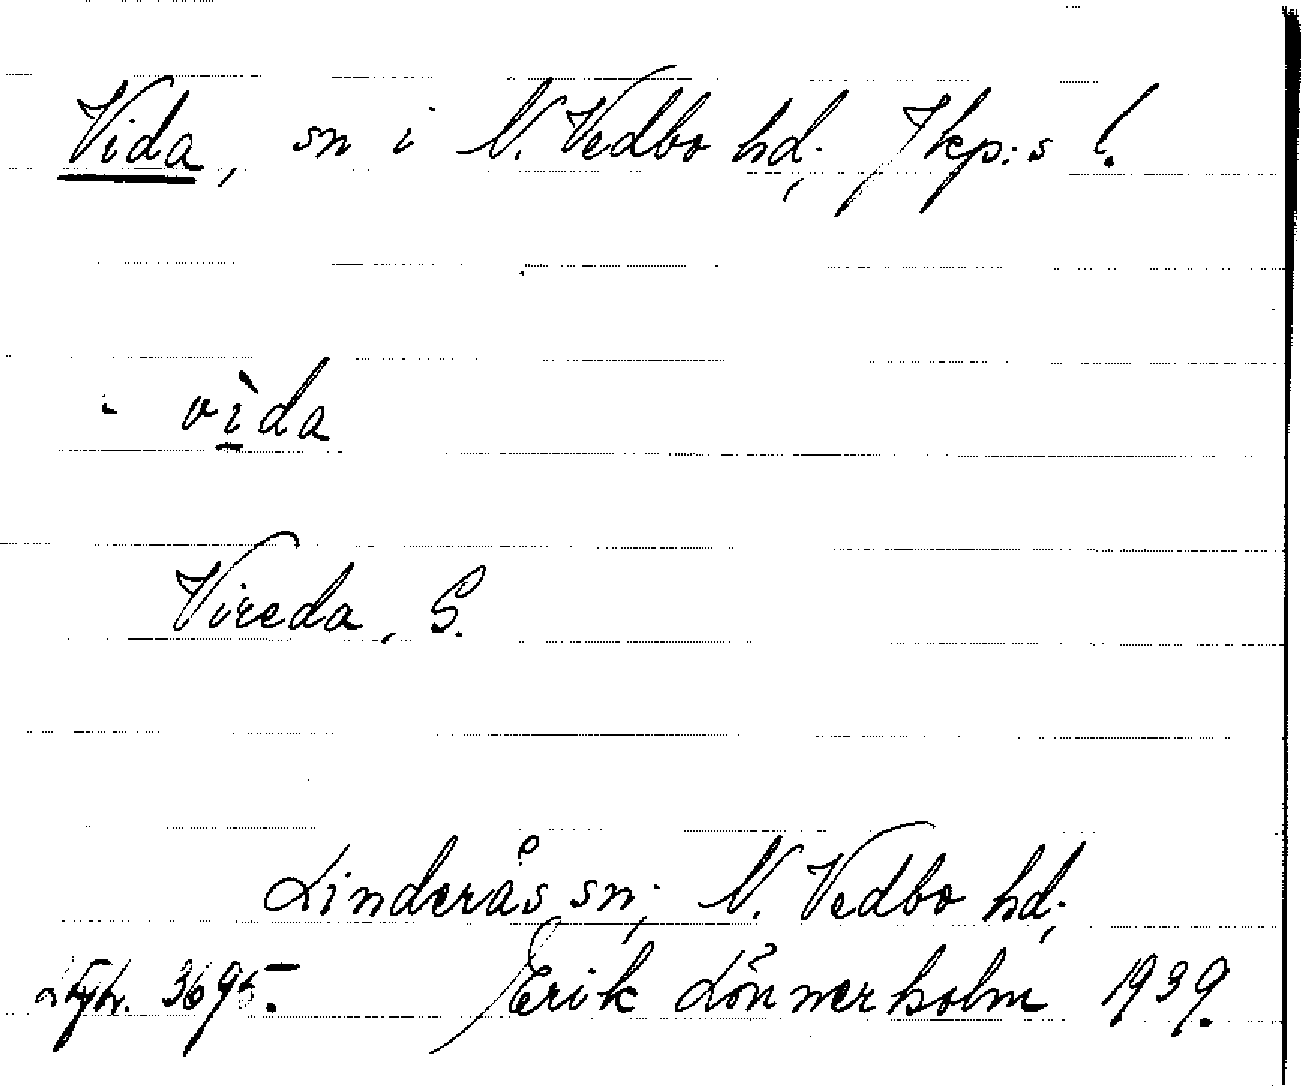 Vida, sn i N. Vedbo hd; Jkp:s l.
- vìda
Vireda, S.
Linderås sn; N. Vedbo hd;
3695. Erik Lönnerholm 1939.